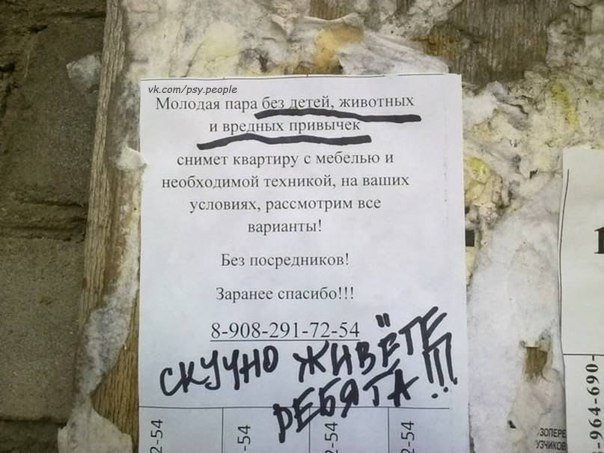 vk.com/psy.people
Молодая пара без детей, животных
и вредных привычек
снимет квартиру с мебелью и
необходимой техникой, на ваших
условиях, рассмотрим все
варианты!
Без посредников!
Заранее спасибо!!!
8-908-291-72-54
СКУЧНО ЖИВЁТЕ
РЕБЯТА!!!
2-54
-54
2-54
2-54
1
-964-690-